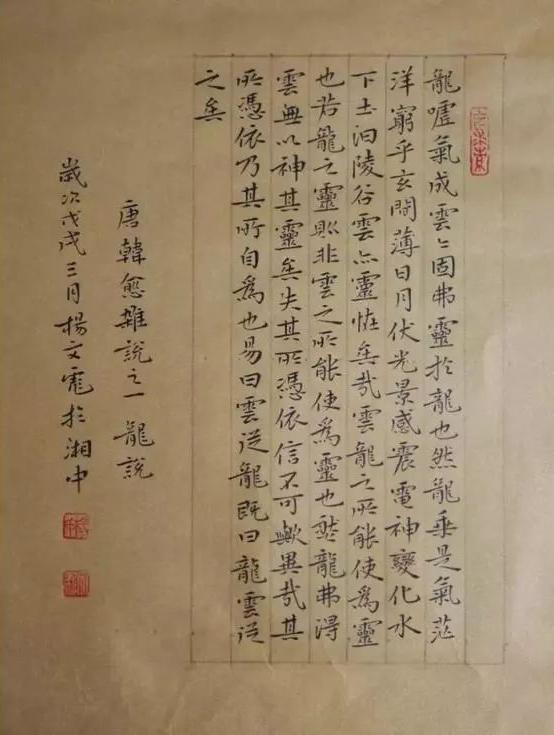 龍噓氣成雲〻固弗靈於龍也然龍乘是氣茫
洋窮乎玄間薄日月伏光景感震電神變化水
下土汩陵谷雲亦靈怪矣哉雲龍之所能使為靈
也若龍之靈則非雲之所能使為靈也然龍弗得
雲無以神其靈矣失其所憑依信不可歟異哉其
所憑依乃其所自為也易曰雲從龍既曰龍雲從
之矣
唐韓愈雜說之一龍說
歲次戊戌三月楊文於湘中